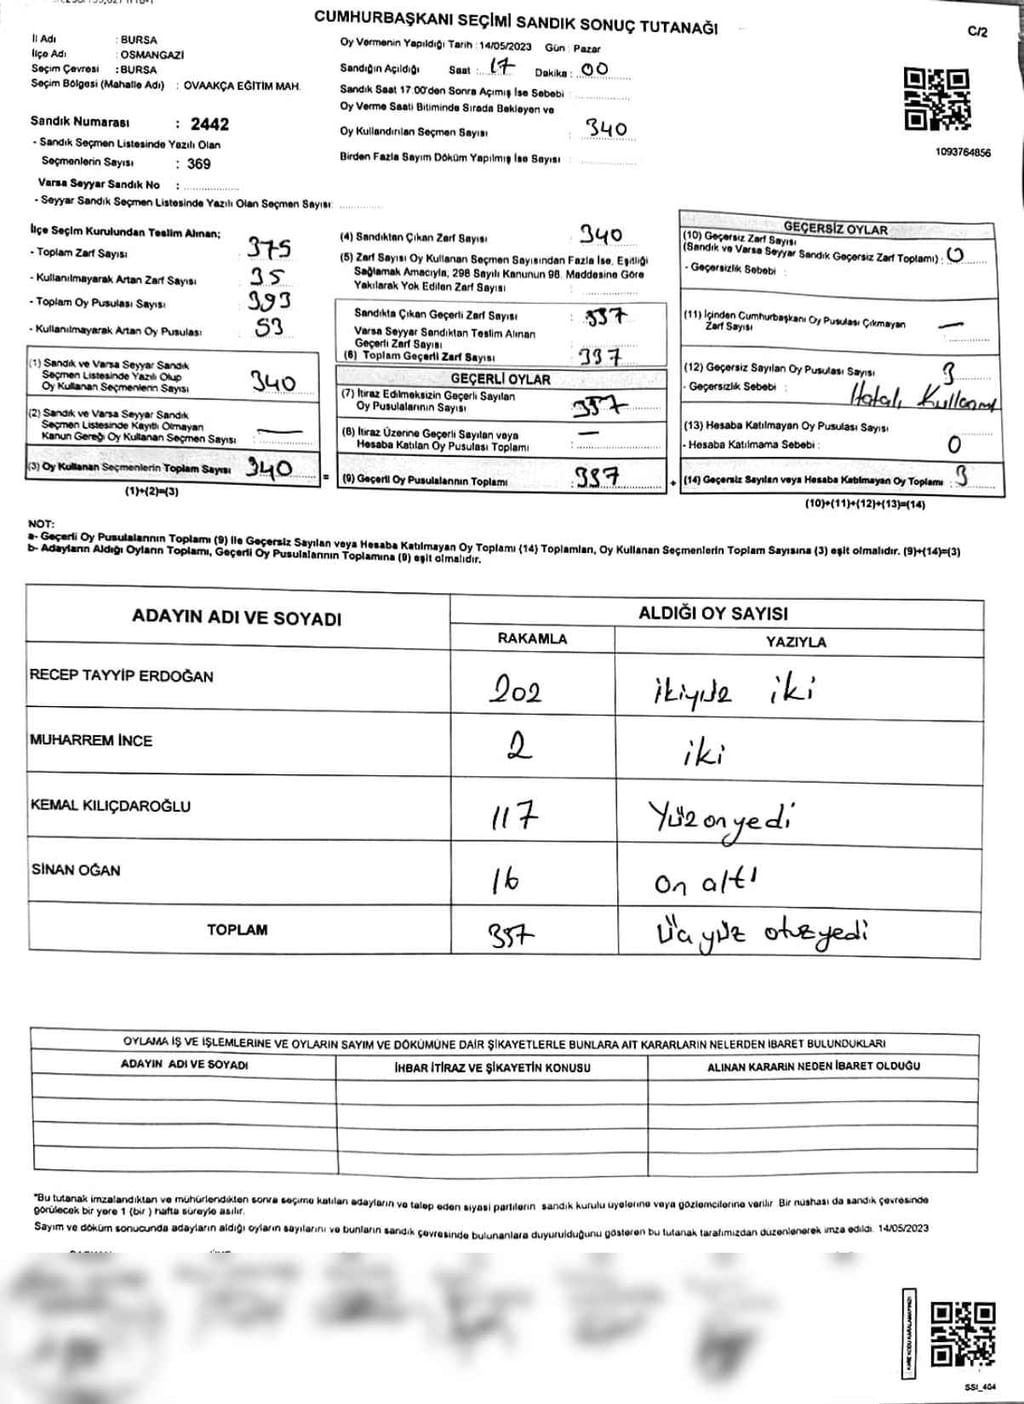 CUMHURBAŞKANI SEÇİMİ SANDIK SONUÇ TUTANAĞI
C/2
İl Adı : BURSA
İlçe Adı : OSMANGAZİ
Seçim Çevresi : BURSA
Seçim Bölgesi (Mahalle Adı) : OVAAKÇA EĞİTİM MAH.
Sandık Numarası : 2442
- Sandık Seçmen Listesinde Yazılı Olan
Seçmenlerin Sayısı : 369
Varsa Seyyar Sandık No :
- Seyyar Sandık Seçmen Listesinde Yazılı Olan Seçmen Sayısı:
Oy Vermenin Yapıldığı Tarih : 14/05/2023 Gün : Pazar
Sandığın Açıldığı Saat : 17 Dakika : 00
Sandık Saat 17:00'den Sonra Açımış İse Sebebi :
Oy Verme Saati Bitiminde Sırada Bekleyen ve
Oy Kullandırılan Seçmen Sayısı : 340
Birden Fazla Sayım Döküm Yapılmış İse Sayısı :
1093764856
İlçe Seçim Kurulundan Teslim Alınan;
- Toplam Zarf Sayısı : 375
- Kullanılmayarak Artan Zarf Sayısı : 35
- Toplam Oy Pusulası Sayısı : 393
- Kullanılmayarak Artan Oy Pusulası : 53
(1) Sandık ve Varsa Seyyar Sandık
Seçmen Listesinde Yazılı Olup
Oy Kullanan Seçmenlerin Sayısı : 340
(2) Sandık ve Varsa Seyyar Sandık
Seçmen Listesinde Kayıtlı Olmayan
Kanun Gereği Oy Kullanan Seçmen Sayısı : —
(3) Oy Kullanan Seçmenlerin Toplam Sayısı : 340
(1)+(2)=(3)
(4) Sandıktan Çıkan Zarf Sayısı : 340
(5) Zarf Sayısı Oy Kullanan Seçmen Sayısından Fazla İse, Eşitliği
Sağlamak Amacıyla, 298 Sayılı Kanunun 98. Maddesine Göre
Yakılarak Yok Edilen Zarf Sayısı :
Sandıkta Çıkan Geçerli Zarf Sayısı : 337
Varsa Seyyar Sandıktan Teslim Alınan
Geçerli Zarf Sayısı :
(6) Toplam Geçerli Zarf Sayısı : 337
GEÇERLİ OYLAR
(7) İtiraz Edilmeksizin Geçerli Sayılan
Oy Pusulalarının Sayısı : 337
(8) İtiraz Üzerine Geçerli Sayılan veya
Hesaba Katılan Oy Pusulası Toplamı : —
= (9) Geçerli Oy Pusulalarının Toplamı : 337
GEÇERSİZ OYLAR
(10) Geçersiz Zarf Sayısı
(Sandık ve Varsa Seyyar Sandık Geçersiz Zarf Toplamı) : 0
- Geçersizlik Sebebi :
(11) İçinden Cumhurbaşkanı Oy Pusulası Çıkmayan
Zarf Sayısı : —
(12) Geçersiz Sayılan Oy Pusulası Sayısı : 3
- Geçersizlik Sebebi : Hatalı Kullanım
(13) Hesaba Katılmayan Oy Pusulası Sayısı
- Hesaba Katılmama Sebebi : 0
+ (14) Geçersiz Sayılan veya Hesaba Katılmayan Oy Toplamı : 3
(10)+(11)+(12)+(13)=(14)
NOT:
a- Geçerli Oy Pusulalarının Toplamı (9) ile Geçersiz Sayılan veya Hesaba Katılmayan Oy Toplamı (14) Toplamları, Oy Kullanan Seçmenlerin Toplam Sayısına (3) eşit olmalıdır. (9)+(14)=(3)
b- Adayların Aldığı Oyların Toplamı, Geçerli Oy Pusulalarının Toplamına (9) eşit olmalıdır.
ADAYIN ADI VE SOYADI ALDIĞI OY SAYISI
RAKAMLA YAZIYLA
RECEP TAYYİP ERDOĞAN 202 ikiyüz iki
MUHARREM İNCE 2 iki
KEMAL KILIÇDAROĞLU 117 Yüz onyedi
SİNAN OĞAN 16 on altı
TOPLAM 337 Üç yüz otuzyedi
OYLAMA İŞ VE İŞLEMLERİNE VE OYLARIN SAYIM VE DÖKÜMÜNE DAİR ŞİKAYETLERLE BUNLARA AİT KARARLARIN NELERDEN İBARET BULUNDUKLARI
ADAYIN ADI VE SOYADI İHBAR İTİRAZ VE ŞİKAYETİN KONUSU ALINAN KARARIN NEDEN İBARET OLDUĞU
"Bu tutanak imzalandıktan ve mühürlendikten sonra seçime katılan adayların ve talep eden siyasi partilerin sandık kurulu üyelerine veya gözlemcilerine verilir. Bir nüshası da sandık çevresinde
görülecek bir yere 1 (bir) hafta süreyle asılır.
Sayım ve döküm sonucunda adayların aldığı oyların sayılarını ve bunların sandık çevresinde bulunanlara duyurulduğunu gösteren bu tutanak tarafımızdan düzenlenerek imza edildi. 14/05/2023
SSI_404